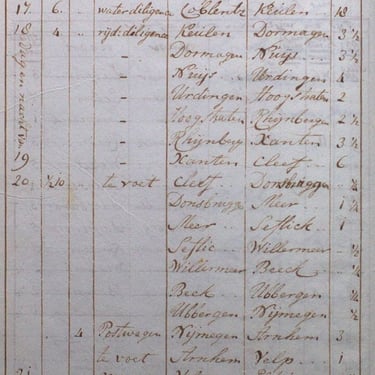 17 6 .. waterdiligence Coblentz Keulen 18
18 .. 4 rijd: diligence Keulen Dormagen 3 ½
- Dormagen Nuijs 3 ½
- Nuijs Urdingen 4
- Urdingen Hoog straten 2
- Hoog straten Rhynbergen 2 ½
- Rhynberg Xanten 3 ½
19 - Xanten Cleef 6
20 ½10 te voet Cleef Donsbruggen
Donsbrugge Meer 1
Meer Seflick 1
Seflic Willermeer ½
Willermeer Beeck
Beek Ubbergen
Ubbergen Nijmegen
4 Postwagen Nijmegen Arnhem 3
te voet Arnhem Velp 1
21